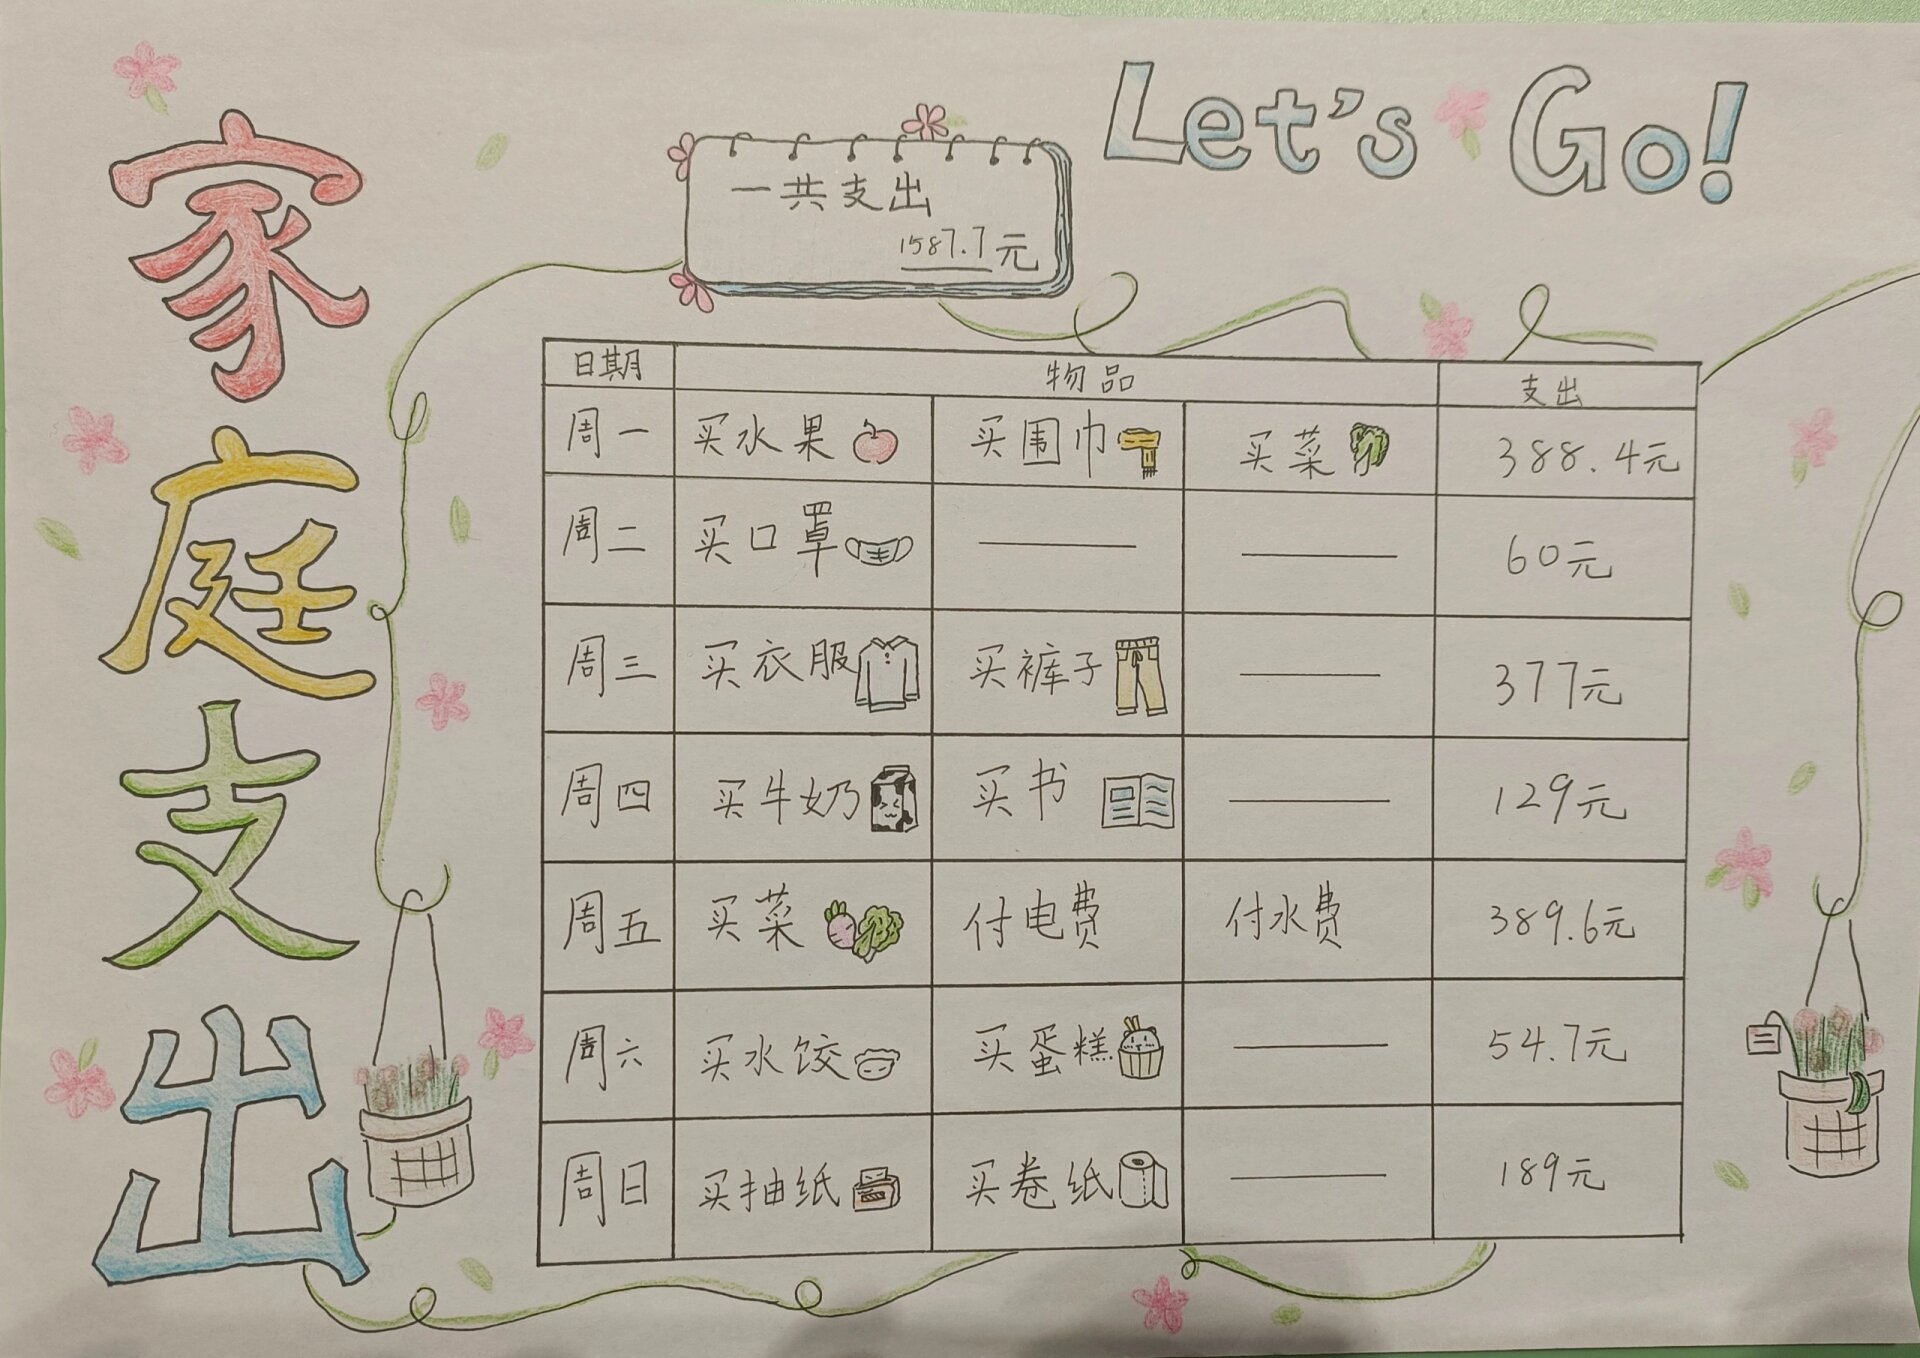 家庭支出
Let's Go!
一共支出
1587.7元
日期 物品 支出
周一 买水果 买围巾 买菜 388.4元
周二 买口罩 60元
周三 买衣服 买裤子 377元
周四 买牛奶 买书 129元
周五 买菜 付电费 付水费 389.6元
周六 买水饺 买蛋糕 54.7元
周日 买抽纸 买卷纸 189元